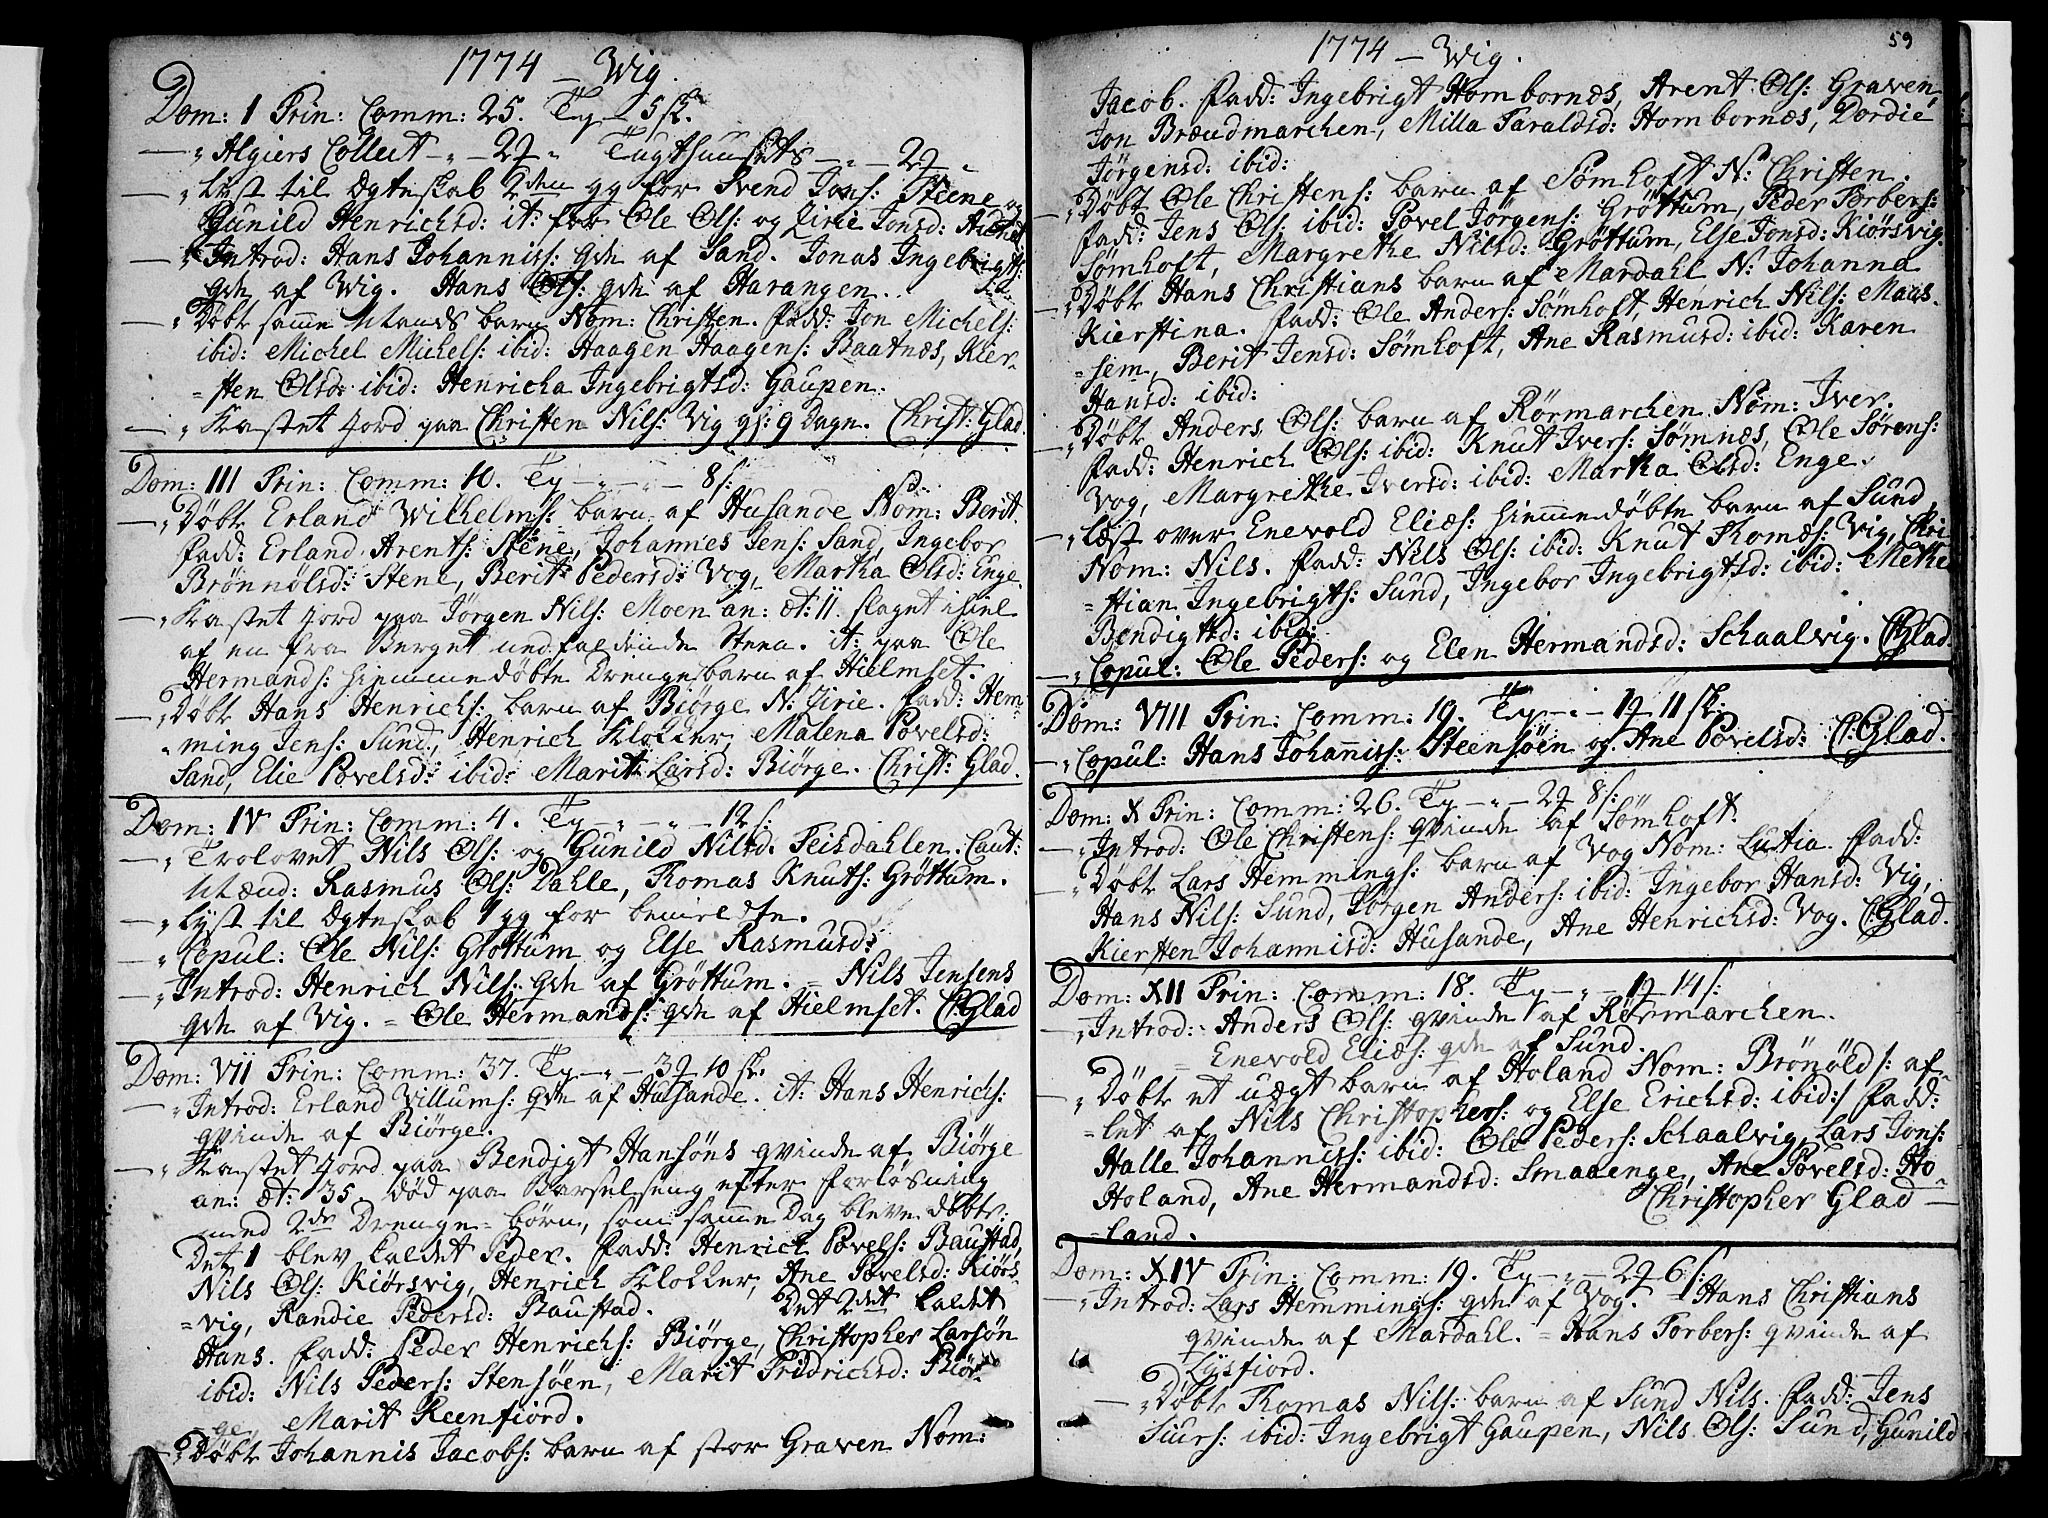 1774 – Wig.
Dom: 1 Trin: Comm: 25. Ty – 5 sk.
–„ Algiers Collect –„– 2 „ Tugthuusets –„– 2 „
–„ Lyst til Ægteskab 2den gg for Svend Jons: Steene og
Gunild Henrichsd: it: for Ole Ols: og Zirie Jonsd:
–„ Introd: Hans Johanniss: gvn af Sand. Jonas Ingebrigts:
gvn af Wig. Hans Ols: gvn af Harangen.
–„ Döbt samme Mands barn Nom: Christen. Fadd: Jon Michels:
ibid: Michel Michels: ibid: Haagen Haagens: Baatnæs, Kier-
=sten Olsd: ibid: Henricha Ingebrigtsd: Gaupen.
–„ Kastet Jord paa Christen Nils: Vig gl: 9 Dagn. Christ: Glad.
Dom: III Trin: Comm: 10. Ty –„–„– 8 s:
–„ Döbt Erland Wilhelms: barn af Husande Nom: Berit.
Fadd: Erland Arents: Stene, Johannes Jens: Sand, Ingebor
Brönnölsd: Stene, Berit Pedersd: Vog, Martha Olsd: Enge.
–„ Kastet Jord paa Jörgen Nils: Moen an: æt: 11. slaget ihiel
af en fra Berget nedfaldende Steen. it: paa Ole
Hermands: hiemmedöbte Drengebarn af Hielmset.
–„ Döbt Hans Henrichs: barn af Biörge N: Zirie. Fadd: Hem-
=ming Jens: Sund, Henrich Klokker, Malena Povelsd:
Sand, Elie Povelsd: ibid: Marit Larsd: Biörge. Christ: Glad.
Dom: IV Trin: Comm: 4. Ty –„–„– 12 s:
–„ Trolovet Nils Ols: og Gunild Nilsd: Feisdahlen. Caut:
Mænd: Rasmus Ols: Dahle, Thomas Knuts: Gröttum.
–„ Lyst til Ægteskab 1 gg for bemeldte.
–„ Copul: Ole Nils: Glöttum og Else Rasmusd:
–„ Introd: Henrich Nils: gvn af Gröttum. = Nils Jensens
gvn af Vig. = Ole Hermands: gvn af Hielmset. C: Glad
Dom: VII Trin: Comm: 37. Ty –„– 3 10 sk.
–„ Introd: Erland Villums: gvn af Husande. it: Hans Henrichs:
qvinde af Biörge.
–„ Kastet Jord paa Bendigt Hansöns qvinde af Biörge
an: æt: 35. död paa Barselseng efter Forlösning
med 2de Drenge=börn, som samme Dag bleve döbte:
Det 1 blev kaldet Peder. Fadd: Henrich Povels: Baustad,
Nils Ols: Kiörsvig, Henrich Klokker, Ane Povelsd: Kiörs-
=vig, Randie Pedersd: Baustad. Det 2det kaldet
Hans. Fadd: Peder Henrichs: Biörge, Christopher Larsön
ibid: Nils Peders: Stensöen, Marit Fridrichsd: Biör-
=ge, Marit Reenfiord.
–„ Döbt Johannis Jacobs: barn af stor Graven Nom:
1774 – Wig.
59
Jacob. Fadd: Ingebrigt Hombornæs, Arent Ols: Graven,
Jon Brændmarchen, Milla Taraldsd: Hombornæs, Dordie
Jörgensd: ibid:
–„ Döbt Ole Christens: barn af Sömhoft N: Christen.
Fadd: Jens Ols: ibid: Povel Jörgens: Gröttum, Peder Torbers:
Sömhoft, Margrethe Nilsd: Gröttum, Else Jonsd: Kiörsvig.
–„ Döbt Hans Christians barn af Mardahl N: Johanna
Kierstina. Fadd: Ole Anders: Sömhoft, Henrich Nils: Maas-
=sem, Berit Jensd: Sömhoft, Ane Rasmusd: ibid: Karen
Hansd: ibid:
–„ Döbt Anders Ols: barn af Rörmarchen Nom: Iver.
Fadd: Henrich Ols: ibid: Knut Ivers: Sömnæs, Ole Sörens:
Vog, Margrethe Iversd: ibid: Martha Olsd: Enge.
–„ Læst over Enevold Eliæs: hiemmedöbte barn af Sund
Nom: Nils. Fadd: Nils Ols: ibid: Knut Thomæs: Vig, Chri-
=stian Ingebrigts: Sund, Ingebor Ingebrigtsd: ibid: Methe
Bendigtsd: ibid:
–„ Copul: Ole Peders: og Elen Hermandsd: Schaalvig. C: Glad
Dom: VIII Trin: Comm: 19. Ty –„– 1 11 sk:
–„ Copul: Hans Johanniss: Steensöen og Ane Povelsd: C: Glad.
Dom: X Trin: Comm: 26. Ty –„– 2 8 s:
–„ Introd: Ole Christens: qvinde af Sömhoft.
–„ Döbt Lars Hemmings: barn af Vog Nom: Lutia. Fadd:
Hans Nils: Sund, Jörgen Anders: ibid: Ingebor Hansd: Vig,
Kiersten Johannisd: Husande, Ane Henrichsd: Vog. C: Glad.
Dom: XII Trin: Comm: 18. Ty –„– 1 14 s:
–„ Introd: Anders Ols: qvinde af Rörmarchen.
= Enevold Eliæs: gvn af Sund.
–„ Döbt et uægt barn af Holand Nom: Brönöld /: af-
=let af Nils Christophers: og Else Erichsd: ibid :/ Fadd:
Halle Johanniss: ibid: Ole Peders: Schaalvig, Lars Jons:
Holand, Ane Hermandsd: Smaaenge, Ane Povelsd: Ho-
=land. Christopher Glad –
Dom: XIV Trin: Comm: 19. Ty –„– 2 6 s:
–„ Introd: Lars Hemmings: gvn af Vog. = Hans Christians
qvinde af Mardahl. = Hans Torbers: qvinde af
Lysfiord.
–„ Döbt Thomas Nils: barn af Sund Nils. Fadd: Jens
Siurs: ibid: Ingebrigt Gaupen, Nils Ols: Sund, Gunild